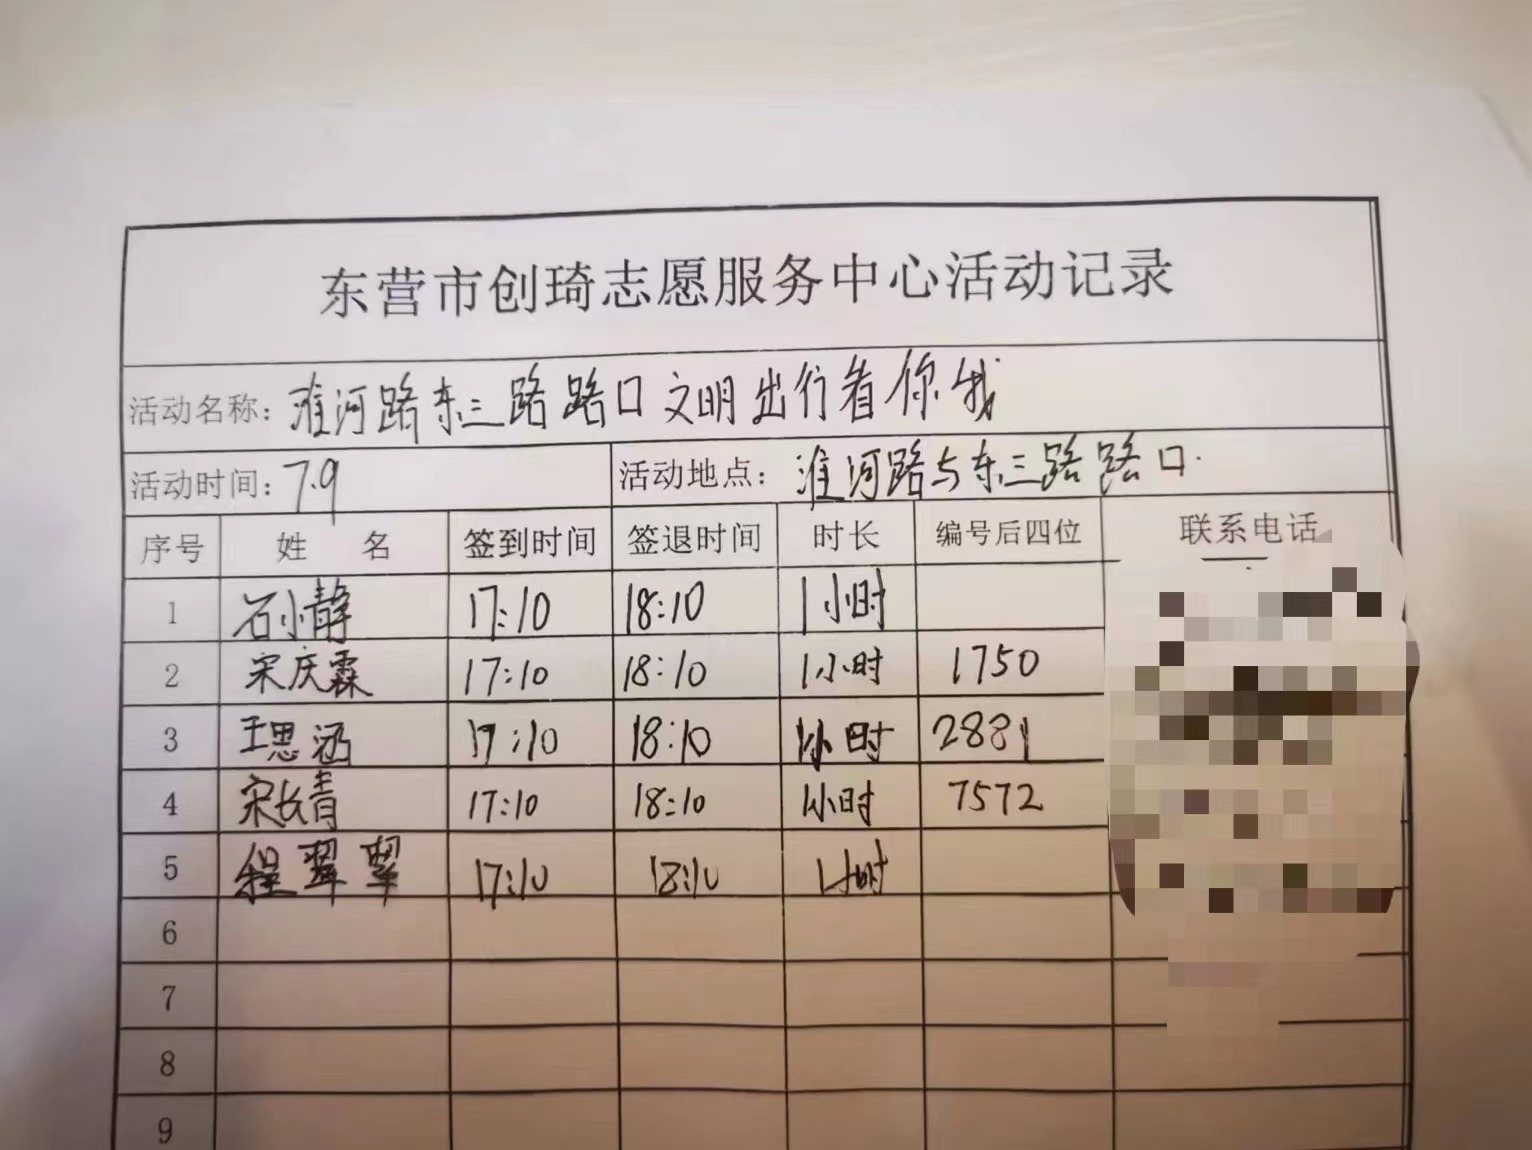 东营市创琦志愿服务中心活动记录
活动名称：淮河路东三路路口文明出行看你我
活动时间：7.9 活动地点：淮河路与东三路路口.
序号 姓 名 签到时间 签退时间 时长 编号后四位 联系电话
1 石小静 17:10 18:10 1小时
2 宋庆霖 17:10 18:10 1小时 1750
3 王思涵 17:10 18:10 1小时 2881
4 宋长青 17:10 18:10 1小时 7572
5 程翠翠 17:10 18:10 1小时
6
7
8
9